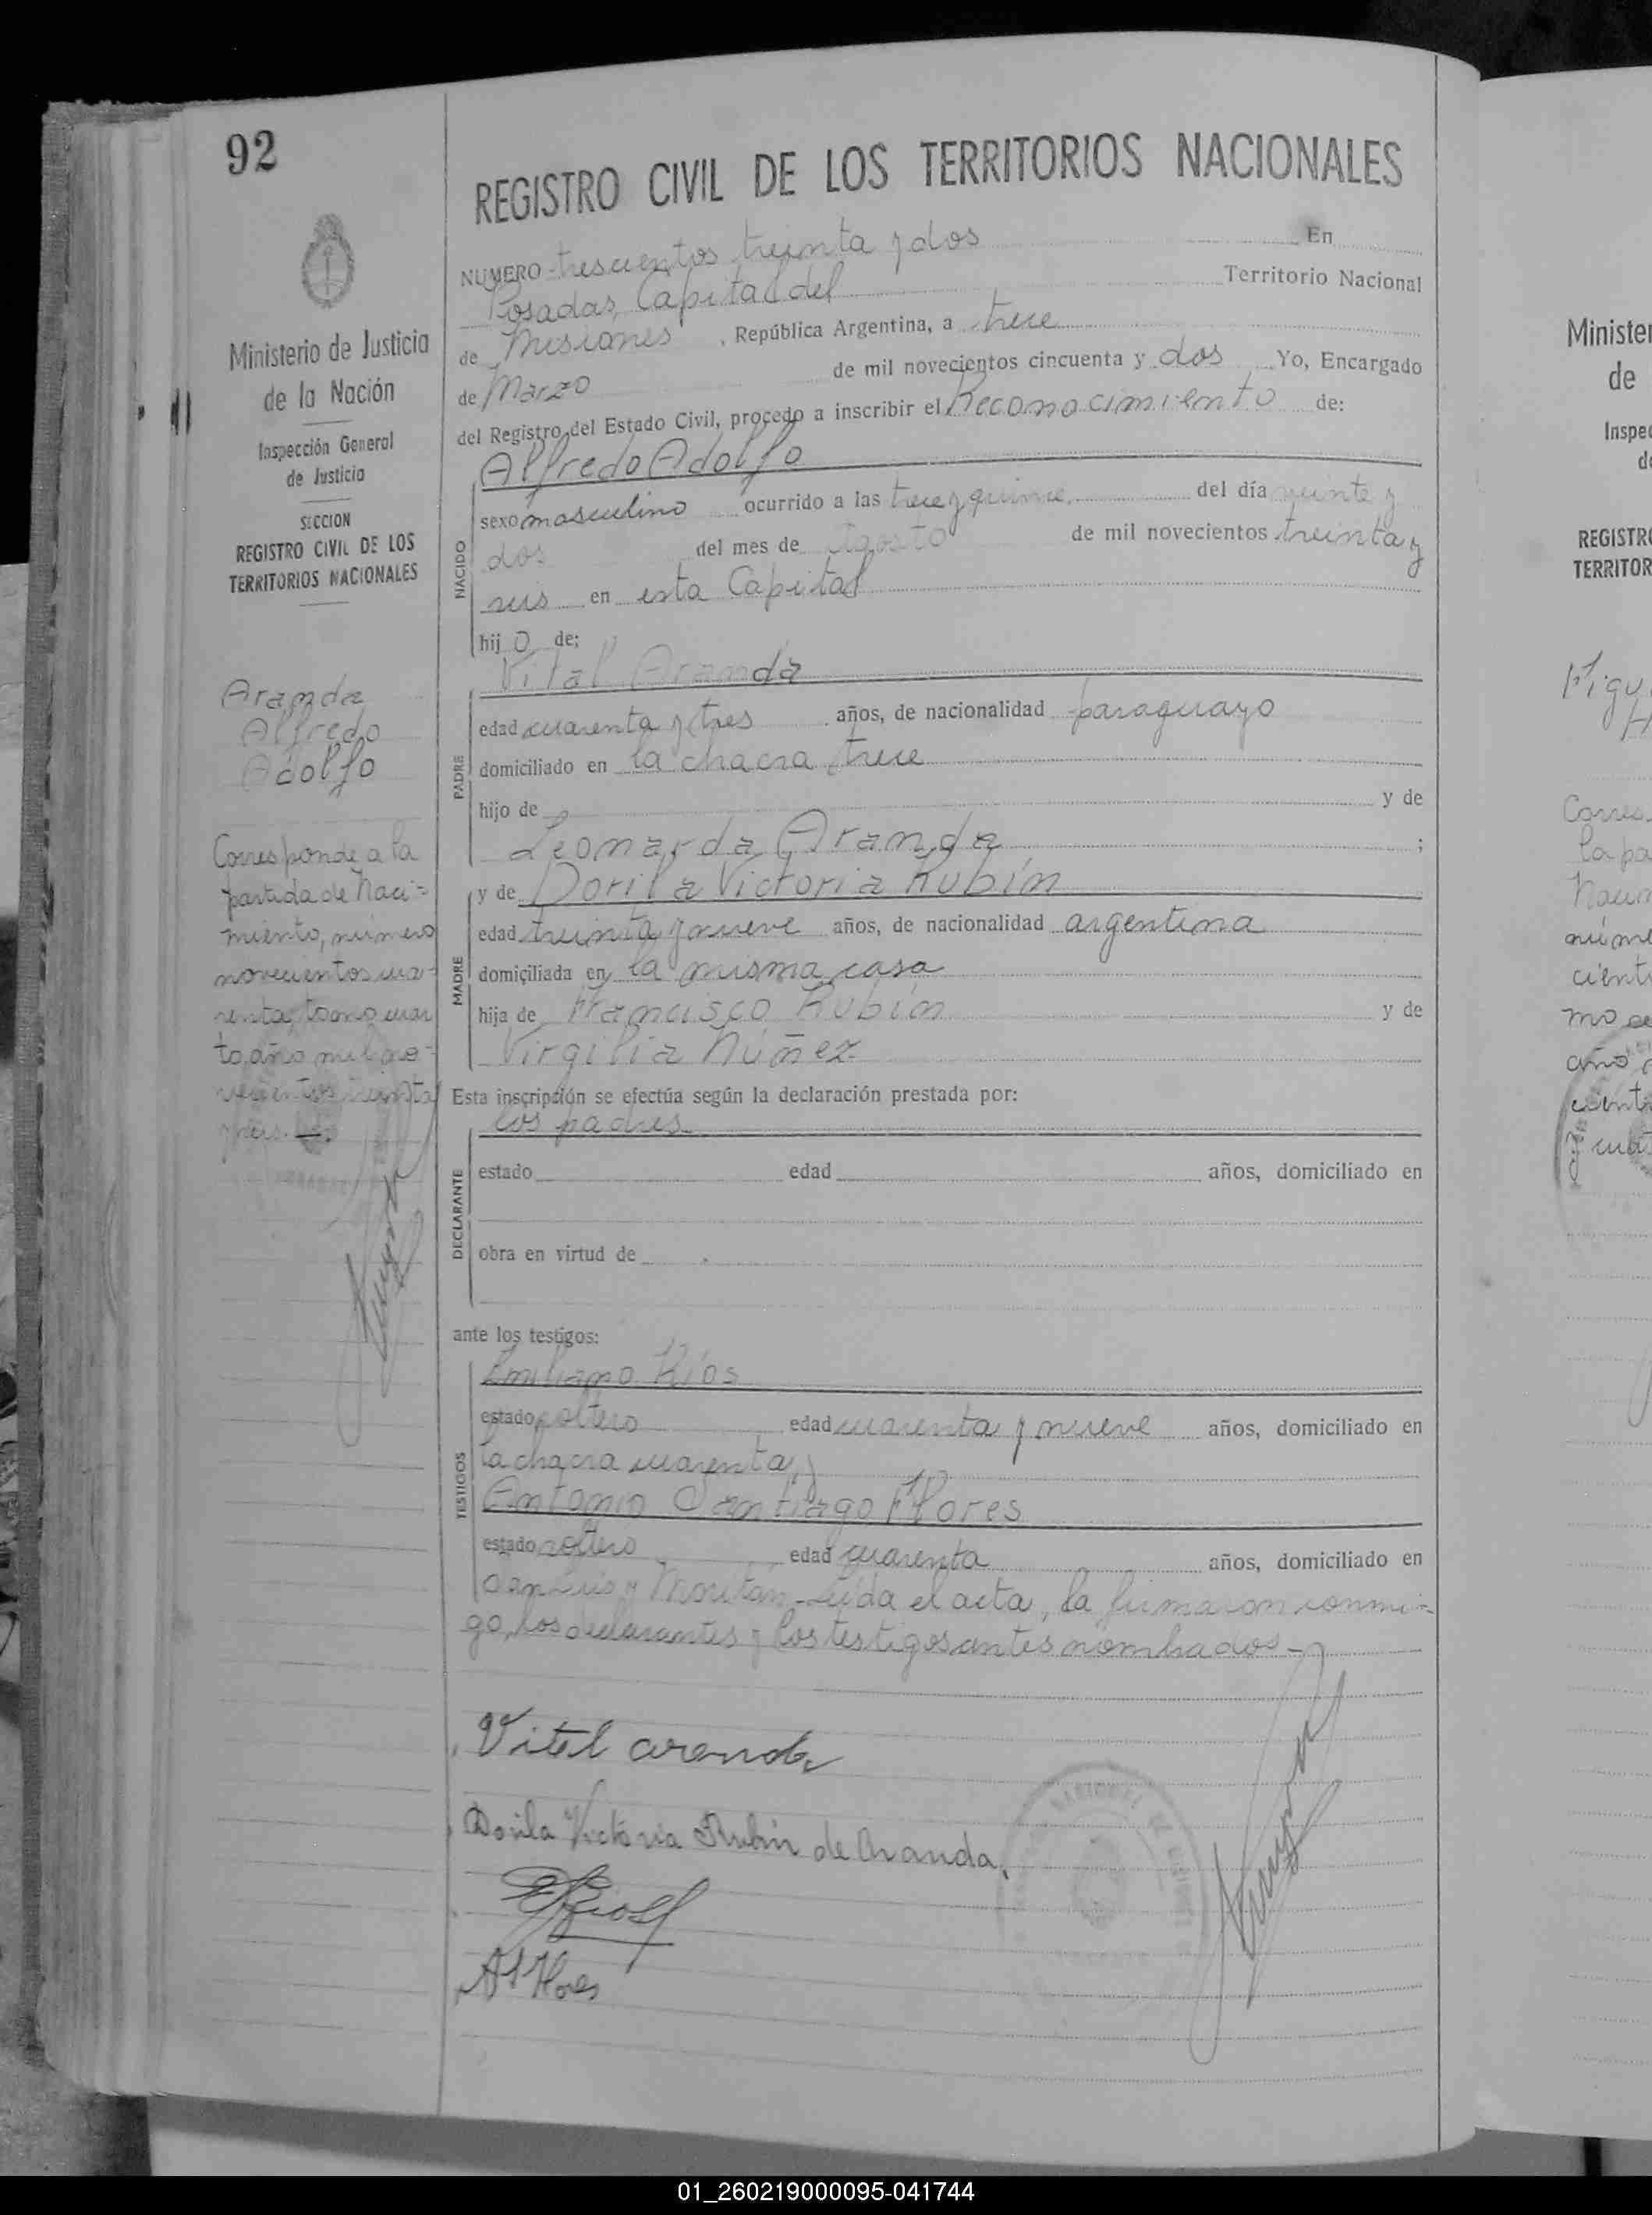 92
REGISTRO CIVIL DE LOS TERRITORIOS NACIONALES
NUMERO trescientos treinta y dos En
Posadas, Capital del Territorio Nacional
de Misiones, República Argentina, a trece
de Marzo de mil novecientos cincuenta y dos Yo, Encargado
del Registro del Estado Civil, procedo a inscribir el Reconocimiento de:
Alfredo Adolfo
NACIDO
sexo masculino ocurrido a las trece y quince, del día veinte y
dos del mes de Agosto de mil novecientos treinta y
seis en esta Capital
hijo de:
Vital Aranda
PADRE
edad cuarenta y tres años, de nacionalidad paraguayo
domiciliado en la chacra trece
hijo de y de
Leonarda Aranda ;
MADRE
y de Dorila Victoria Rubín
edad treinta y nueve años, de nacionalidad argentina
domiciliada en la misma casa
hija de Francisco Rubín y de
Virgilia Núñez.
Esta inscripción se efectúa según la declaración prestada por:
los padres
DECLARANTE
estado edad años, domiciliado en
obra en virtud de
ante los testigos:
TESTIGOS
Emiliano Ríos
estado soltero edad cuarenta y nueve años, domiciliado en
la chacra cuarenta, y
Antonio Santiago Flores
estado soltero edad cuarenta años, domiciliado en
San Luis y Moritán. Leída el acta, la firmaron conmi-
go, los declarantes y los testigos antes nombrados-
Vital aranda
Dorila Victoria Rubin de Aranda,
A S Flores
Ministerio de Justicia
de la Nación
Inspección General
de Justicia
SECCION
REGISTRO CIVIL DE LOS
TERRITORIOS NACIONALES
Aranda
Alfredo
Adolfo
Corresponde a la
partida de Naci=
miento, número
novecientos cua-
renta, tomo cuar
to, año mil no-
vecientos treinta
y seis.
Minister
de
Inspec
de
REGISTRO
TERRITOR
Figu
Corres
la pa
Nacim
núme
cient
mo
año
cient
y cuat
01_260219000095-041744